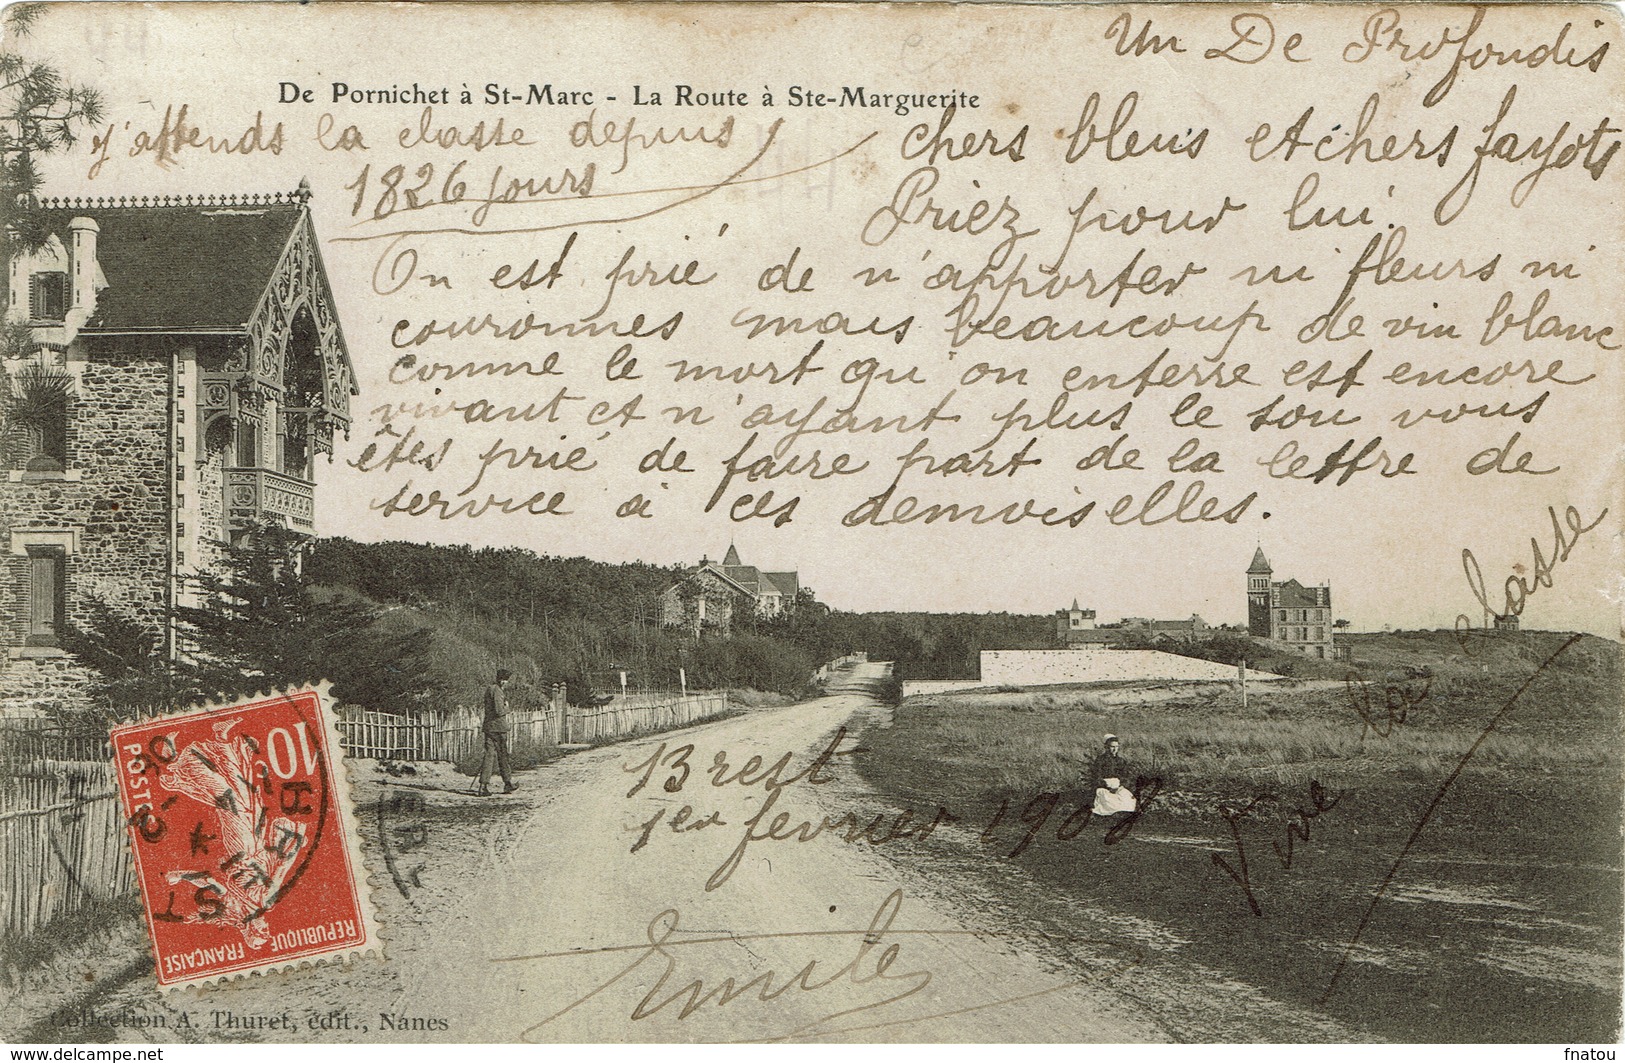 Un De Profondis
De Pornichet à St-Marc - La Route à Ste-Marguerite
j'attends la classe depuis
1826 jours
chers bleus et chers fayots
Priez pour lui.
On est prié de n'apporter ni fleurs ni
couronnes mais beaucoup de vin blanc
comme le mort qu'on enterre est encore
vivant et n'ayant plus le sou vous
êtes prié de faire part de la lettre de
service à ces demoiselles.
Vive la classe
Brest
1er fevrier 1908
Emile
10
POSTES
REPUBLIQUE FRANÇAISE
Collection A. Thuret, édit., Nanes
www.delcampe.net
fnatou